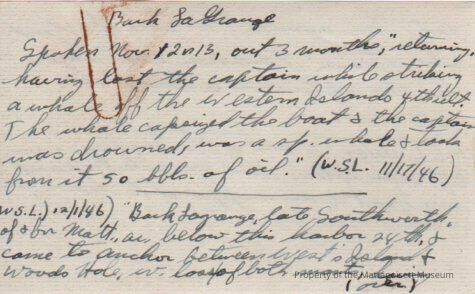 Bark La Grange
Spoken Nov. 12 n 13, out 3 months, "returning,
having lost the captain while striking
a whale off the Western Islands 4th ult.
The whale capsized the boat & the captain
was drowned, was a sp. whale & took
from it 50 bbls. of oil." (W.S.L. 11/17/46)
W.S.L.) 12/1/46) "Bark Lagrange, late Southworth,
of & for Matt., arr. below this harbor 24th, &
came to anchor between West Island &
Woods Hole, w. loss of both
(over)
Property of the Mattapoisett Museum